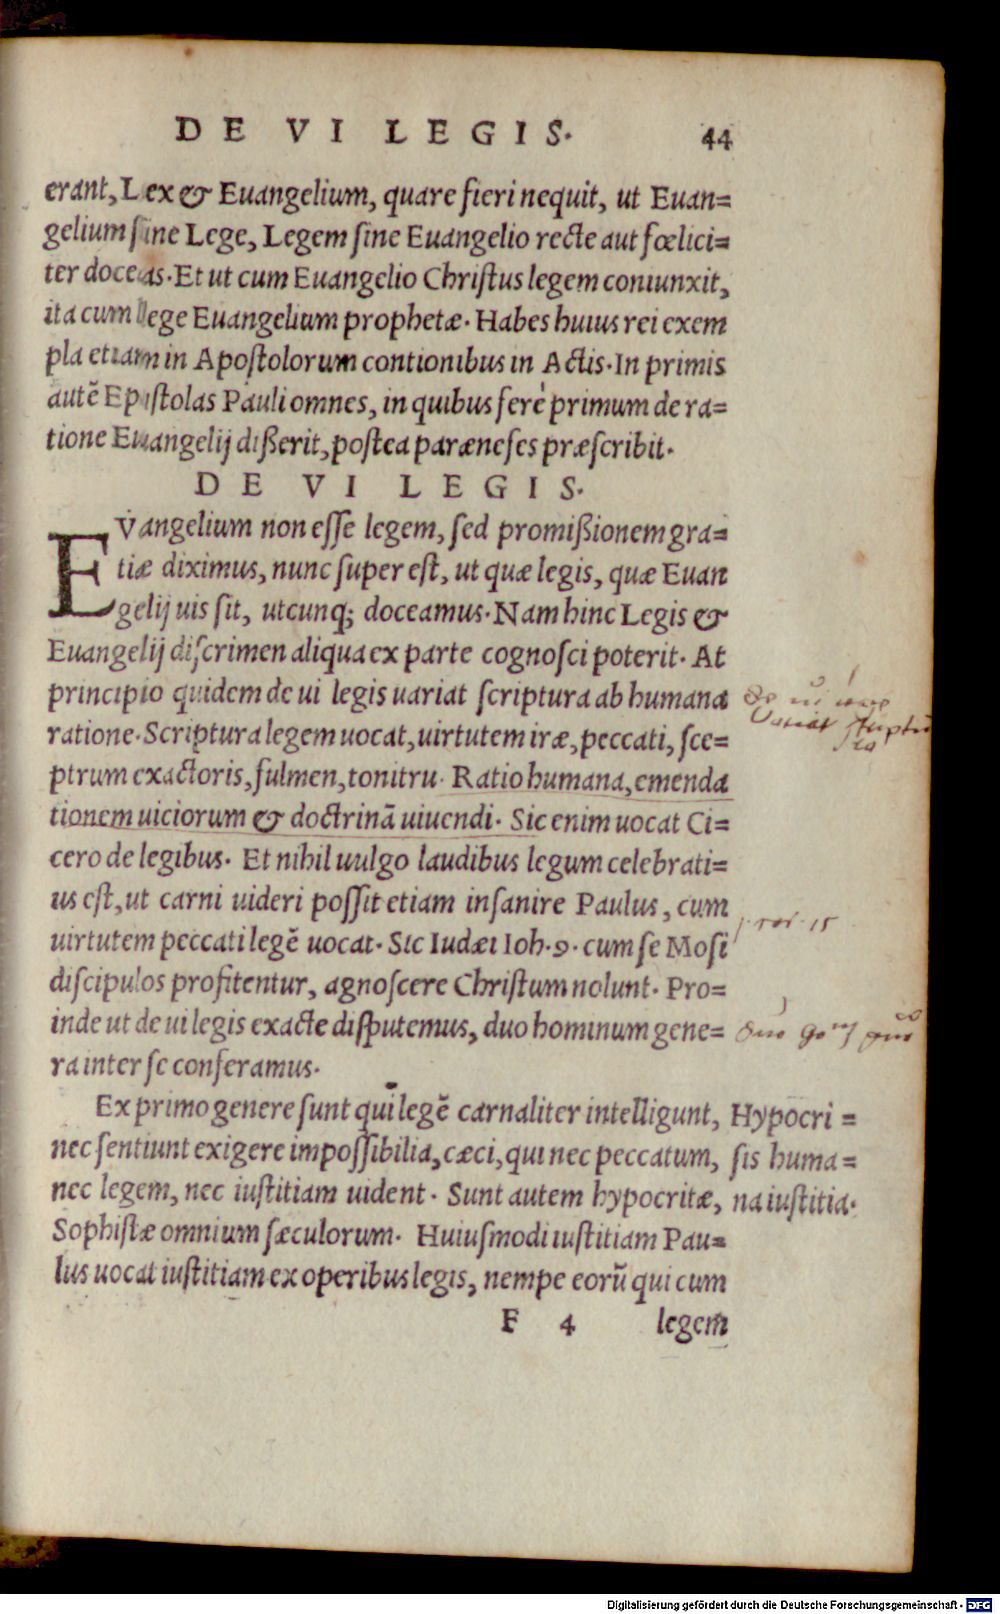 DE VI LEGIS. 44
erant, Lex & Euangelium, quare fieri nequit, ut Euan=
gelium ſine Lege, Legem ſine Euangelio recte aut fœlici=
ter doceas. Et ut cum Euangelio Chriſtus legem coniunxit,
ita cum lege Euangelium prophetæ. Habes huius rei exem
pla etiam in Apoſtolorum contionibus in Actis. In primis
autẽ Epiſtolas Pauli omnes, in quibus ferè primum de ra=
tione Euangelij diſſerit, poſtea paræneſes præſcribit.
DE VI LEGIS.
EVangelium non eſſe legem, ſed promiſſionem gra=
tiæ diximus, nunc ſuper eſt, ut quæ legis, quæ Euan
gelij uis ſit, utcunq; doceamus. Nam hinc Legis &
Euangelij diſcrimen aliqua ex parte cognoſci poterit. At
principio quidem de ui legis uariat ſcriptura ab humana
ratione. Scriptura legem uocat, uirtutem iræ, peccati, ſce=
ptrum exactoris, fulmen, tonitru. Ratio humana, emenda
tionem uiciorum & doctrinã uiuendi. Sic enim uocat Ci=
cero de legibus. Et nihil uulgo laudibus legum celebrati=
us eſt, ut carni uideri poſſit etiam inſanire Paulus, cum
uirtutem peccati legẽ uocat. Sic Iudæi Ioh. 9. cum ſe Moſi
diſcipulos profitentur, agnoſcere Chriſtum nolunt. Pro=
inde ut de ui legis exacte diſputemus, duo hominum gene=
ra inter ſe conferamus.
Ex primo genere ſunt qui legẽ carnaliter intelligunt,
nec ſentiunt exigere impoſſibilia, cæci, qui nec peccatum,
nec legem, nec iuſtitiam uident. Sunt autem hypocritæ,
Sophiſtæ omnium ſæculorum. Huiuſmodi iuſtitiam Pau=
lus uocat iuſtitiam ex operibus legis, nempe eorũ qui cum
F 4 legem
Hypocri=
ſis huma=
na iuſtitia.
1. cor. 15
Digitalisierung gefördert durch die Deutsche Forschungsgemeinschaft - DFG